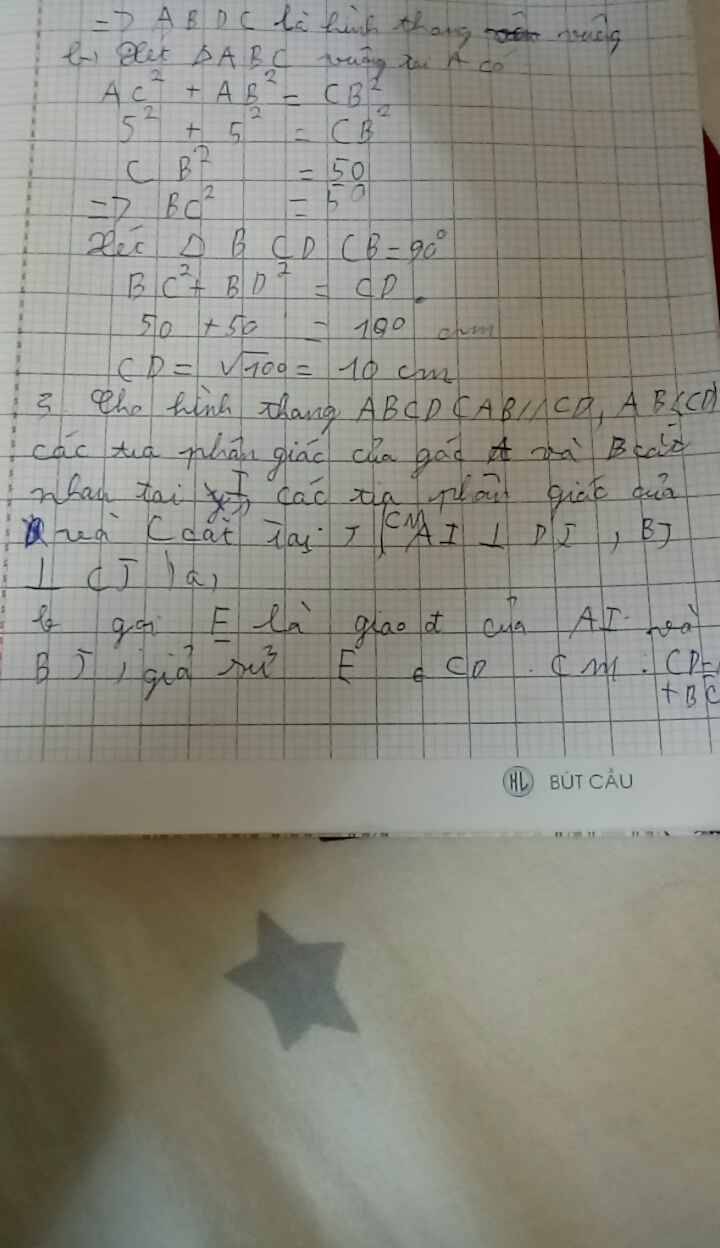 => ABDC là hình thang vuông
b, Xét ΔABC vuông tại A có
AC² + AB² = CB²
5² + 5² = CB²
CB² = 50
=> BC² = 50
Xét Δ BCD CB = 90°
BC² + BD² = CD
50 + 50 = 100 cm
CD = √100 = 10 cm
3 Cho hình thang ABCD (AB // CD, AB < CD)
các tia phân giác của góc A và B cắt
nhau tại I các tia phân giác của
và C cắt tại J CM AI ⊥ DI, BJ
⊥ CJ ) a,
b gọi E là giao đ của AI và
BJ, giả sử E ∈ CD. CM: CD =
+ BC
HL BÚT CẦU